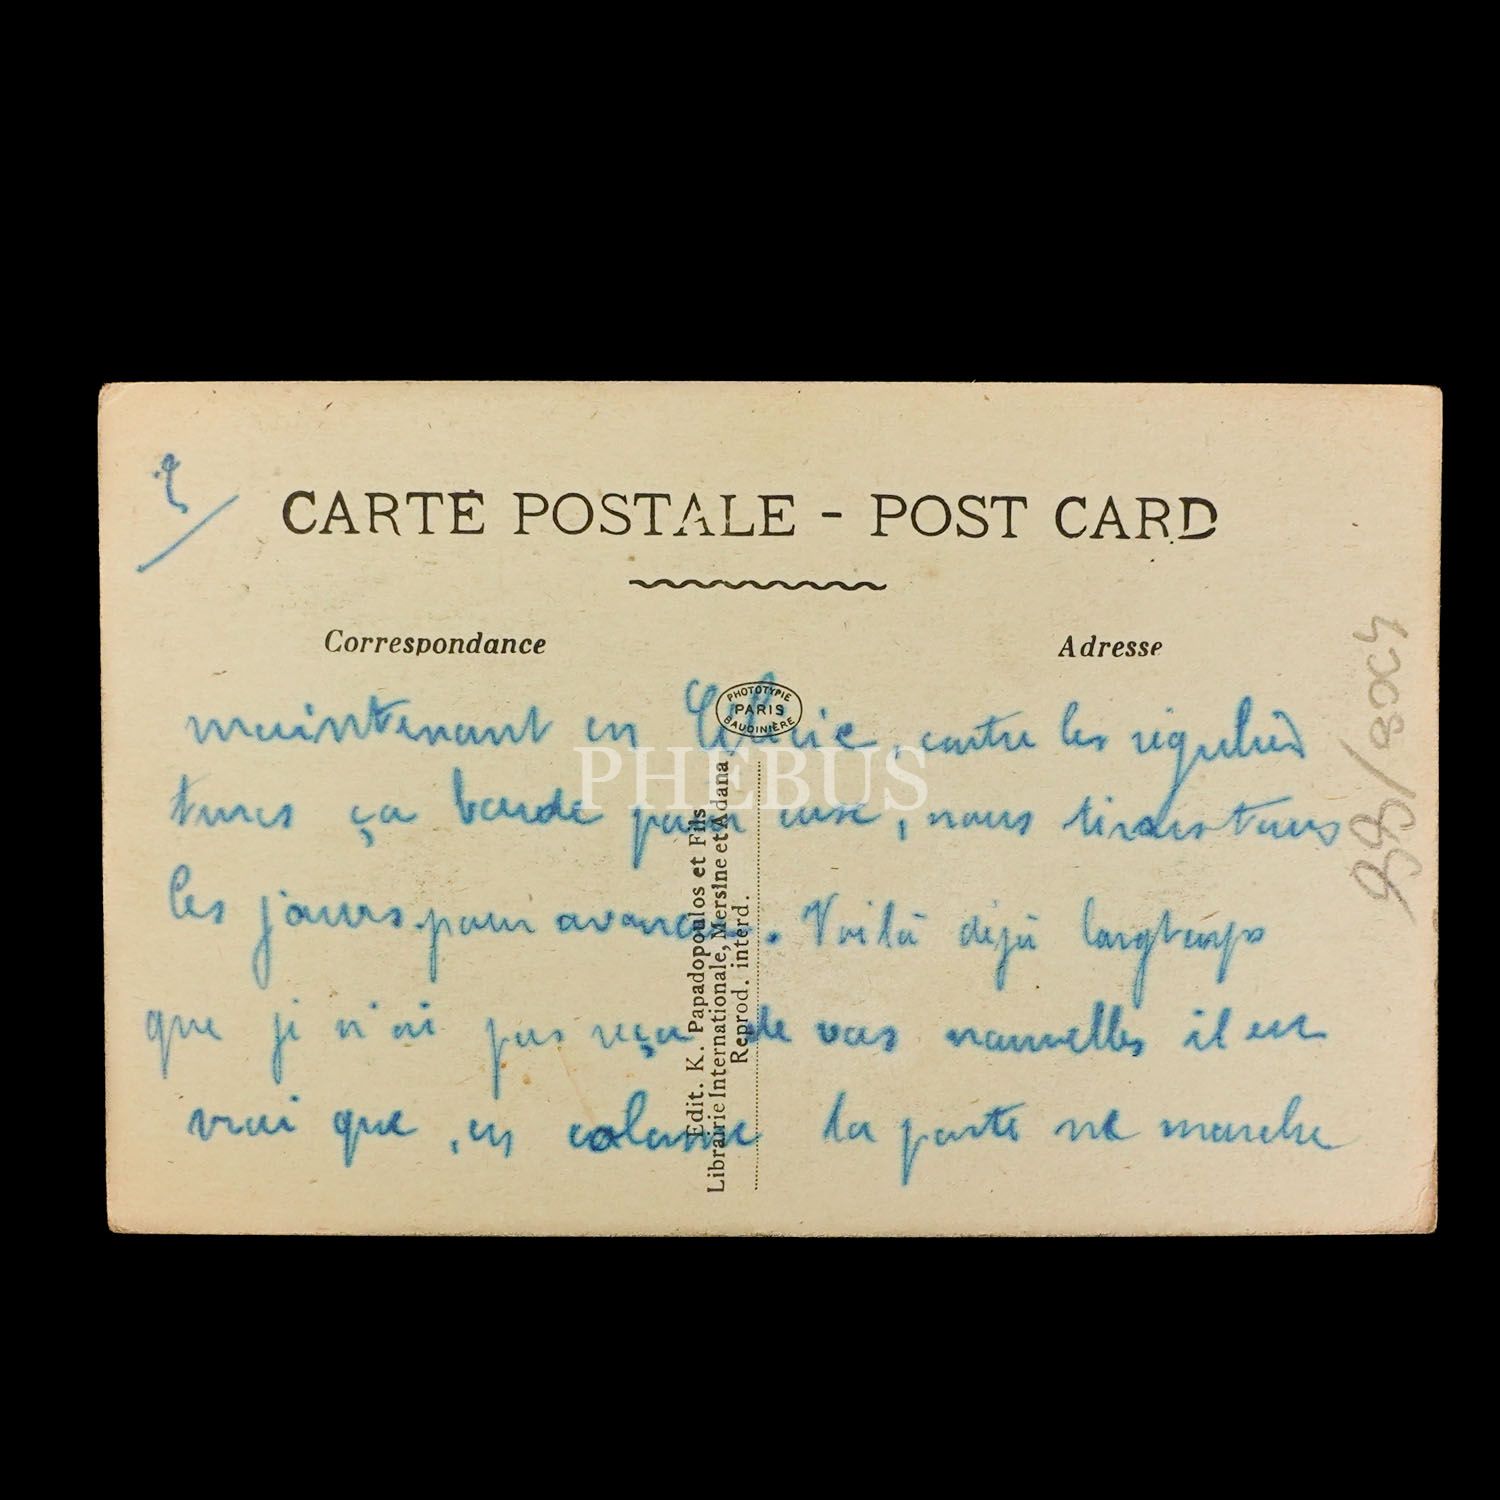 2
CARTE POSTALE - POST CARD
Correspondance
Adresse
PHOTOTYPIE
PARIS
BAUDINIÈRE
maintenant en contre les
turcs ça barde pour nous tirons tous
les jours pour avancer. Voilà déjà longtemps
que je n'ai pas reçu de vos nouvelles il est
vrai que, en colonne la poste ne marche
Edit. K. Papadopoulos et Fils
Librairie Internationale, Mersine et Adana
Reprod. interd.
PHEBUS